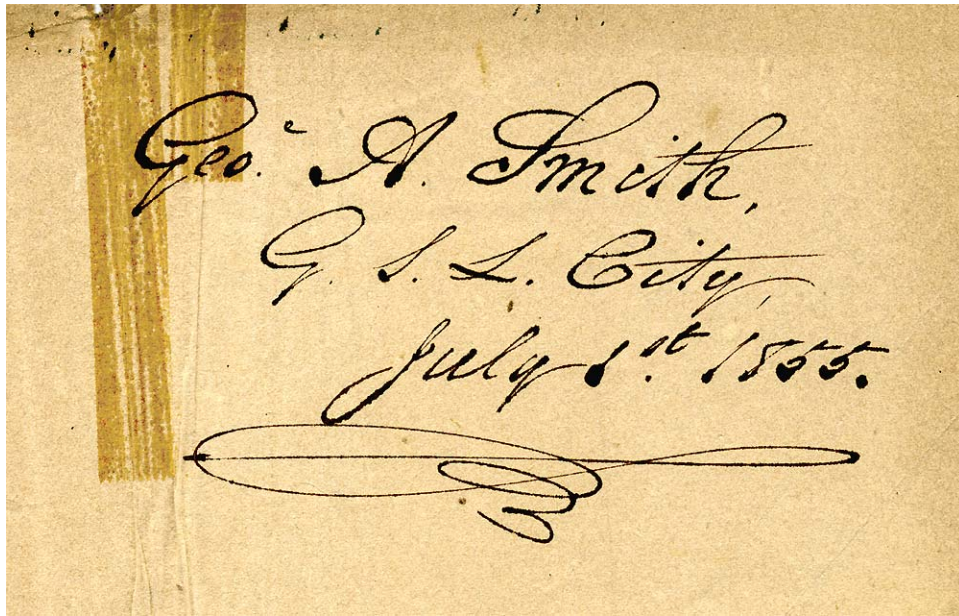 Geo.ᵉ A. Smith,
G. S. L. City,
July 1st. 1855.